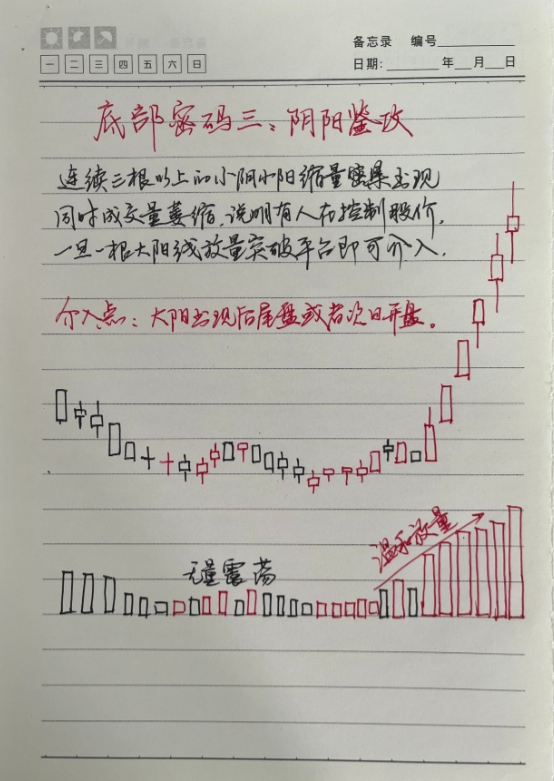 备忘录 编号
一 二 三 四 五 六 日
日期: 年 月 日
底部密码三:阴阳鉴攻
连续三根以上的小阴小阳缩量密集出现
同时成交量萎缩,说明有人在控制股价,
一旦一根大阳线放量突破平台即可介入,
介入点:大阳出现后尾盘或者次日开盘。
无量震荡
温和放量